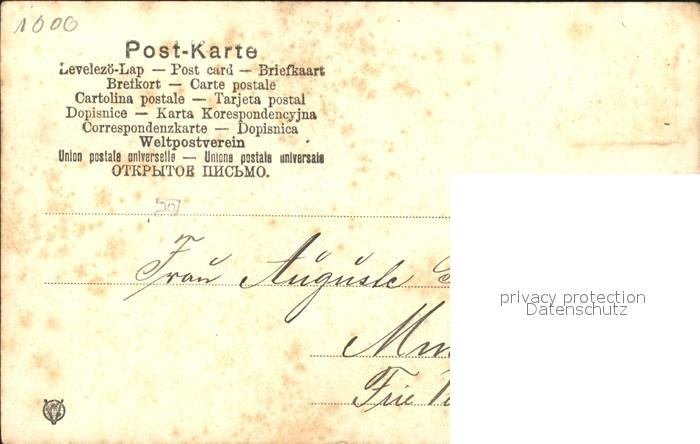 1606
Post-Karte
Levelező-Lap — Post card — Briefkaart
Brefkort — Carte postale
Cartolina postale — Tarjeta postal
Dopisnice — Karta Korespondencyjna
Correspondenzkarte — Dopisnica
Weltpostverein
Union postale universelle — Unione postale universale
ОТКРЫТОЕ ПИСЬМО.
Frau Auguste
privacy protection
Datenschutz